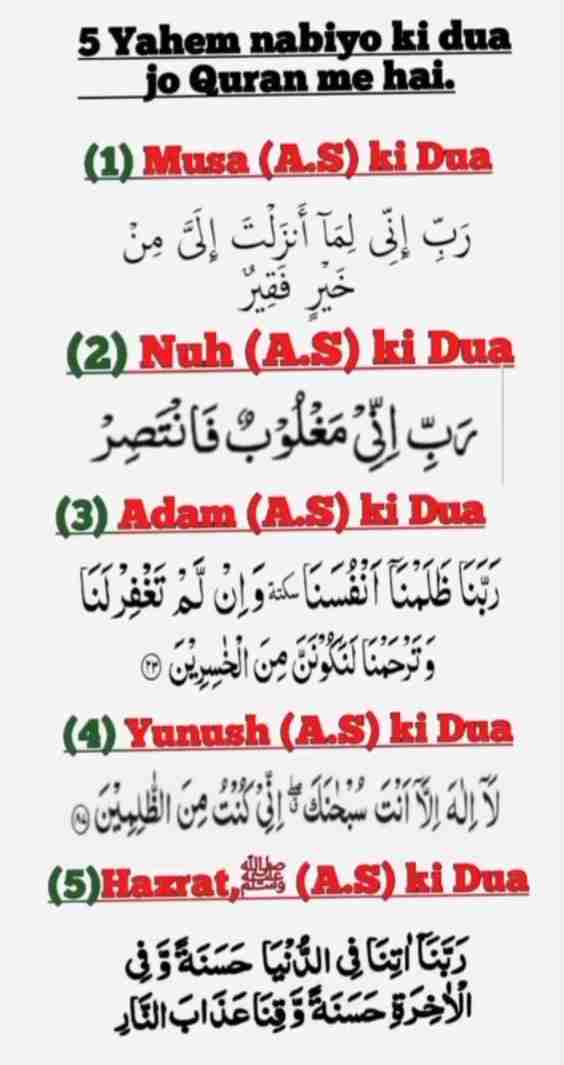 5 Yahem nabiyo ki dua
jo Quran me hai.
(1) Musa (A.S) ki Dua
رَبِّ إِنِّى لِمَآ أَنزَلْتَ إِلَىَّ مِنْ
خَيْرٍ فَقِيرٌ
(2) Nuh (A.S) ki Dua
رَبِّ اِنِّىْ مَغْلُوْبٌ فَانْتَصِرْ
(3) Adam (A.S) ki Dua
رَبَّنَا ظَلَمْنَآ اَنْفُسَنَا سكتة وَاِنْ لَّمْ تَغْفِرْ لَنَا
وَتَرْحَمْنَا لَنَكُوْنَنَّ مِنَ الْخٰسِرِيْنَ ۲۳
(4) Yunush (A.S) ki Dua
لَآ اِلٰهَ اِلَّآ اَنْتَ سُبْحٰنَكَ ۖ اِنِّىْ كُنْتُ مِنَ الظّٰلِمِيْنَ ۸۷
(5)Hazrat,ﷺ (A.S) ki Dua
رَبَّنَآ اٰتِنَا فِى الدُّنْيَا حَسَنَةً وَّ فِى
الْاٰخِرَةِ حَسَنَةً وَّقِنَا عَذَابَ النَّارِ